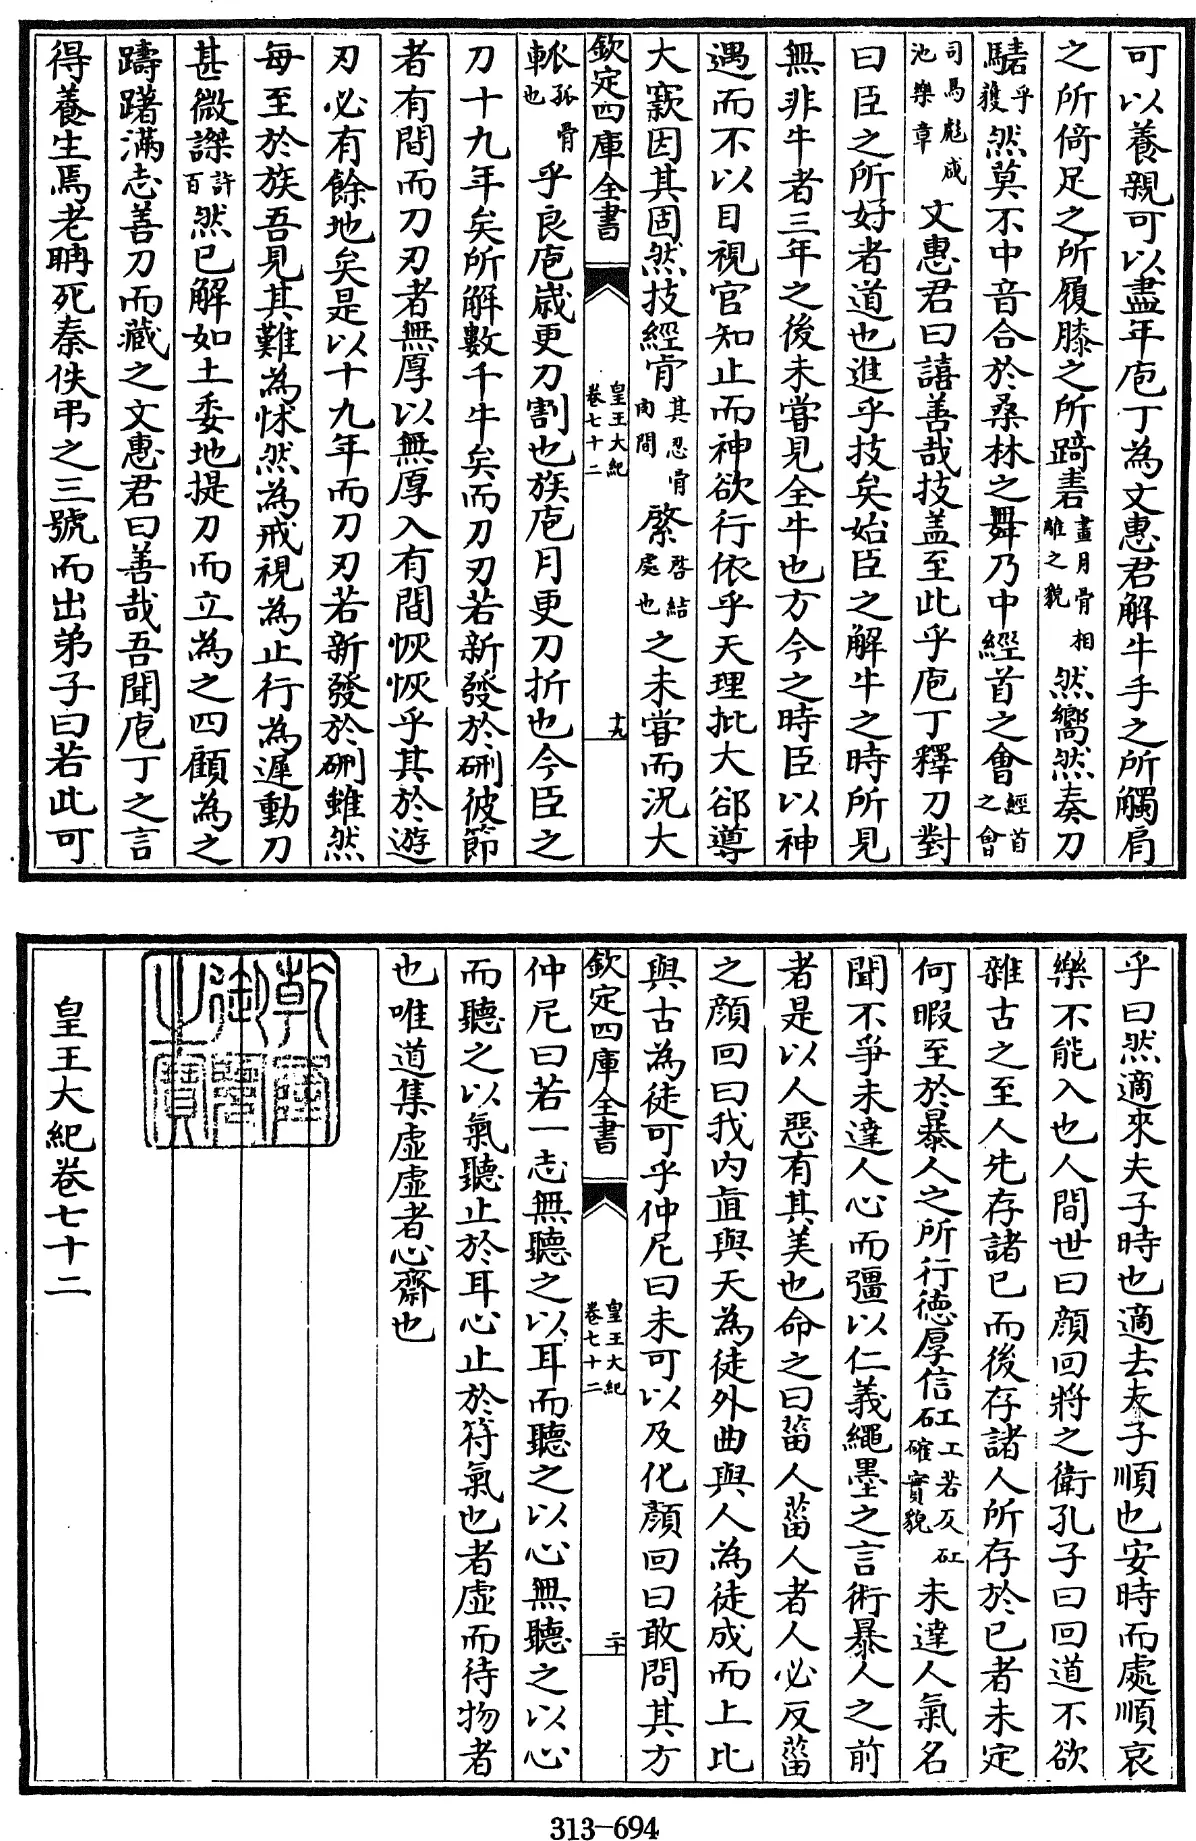 可以養親可以盡年庖丁為文惠君解牛手之所觸肩
之所倚足之所履膝之所踦砉畫月骨相離之貌然嚮然奏刀
騞乎獲然莫不中音合於桑林之舞乃中經首之會經首之會
司馬彪咸池樂章文惠君曰譆善哉技盖至此乎庖丁釋刀對
曰臣之所好者道也進乎技矣始臣之解牛之時所見
無非牛者三年之後未甞見全牛也方今之時臣以神
遇而不以目視官知止而神欲行依乎天理批大郤導
大窾因其固然技經肯其忍骨肉間綮啓結處也之未甞而況大
欽定四庫全書
皇王大紀
卷七十二
十九
軱孤骨也乎良庖歲更刀割也族庖月更刀折也今臣之
刀十九年矣所解數千牛矣而刀刃若新發於硎彼節
者有間而刀刃者無厚以無厚入有間恢恢乎其於遊
刃必有餘地矣是以十九年而刀刃若新發於硎雖然
每至於族吾見其難為怵然為戒視為止行為遲動刀
甚微謋許百然已解如土委地提刀而立為之四顧為之
躊躇滿志善刀而藏之文惠君曰善哉吾聞庖丁之言
得養生焉老聃死秦佚弔之三號而出弟子曰若此可
乎曰然適來夫子時也適去夫子順也安時而處順哀
樂不能入也人間世曰顔回將之衛孔子曰回道不欲
雜古之至人先存諸已而後存諸人所存於已者未定
何暇至於暴人之所行德厚信矼工若反矼確實貌未達人氣名
聞不爭未達人心而彊以仁義繩墨之言術暴人之前
者是以人惡有其美也命之曰菑人菑人者人必反菑
之顔回曰我內直與天為徒外曲與人為徒成而上比
與古為徒可乎仲尼曰未可以及化顔回曰敢問其方
欽定四庫全書
皇王大紀
卷七十二
二十
仲尼曰若一志無聽之以耳而聽之以心無聽之以心
而聽之以氣聽止於耳心止於符氣也者虛而待物者
也唯道集虛虛者心齋也
乾隆
御覽
之寶
皇王大紀卷七十二
313-694